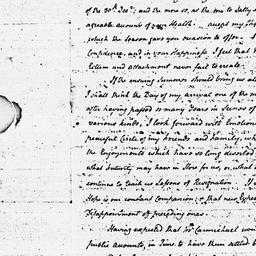 of the 30th Decr, and the more so, as the one to Sally
agreable account of your Health. accept my
which the Season gave you occasion to offer.
Confidence, and in your Happiness I feel that
Esteem and attachment never fail to create.
If the ensuing Summer should bring us al
I shall think the Day of my arrival one of the m
after having passed so many Years in Scenes of
various kinds, I look forward with Emotion
peaceful Circle of my Friends and Family, wh
the Enjoyments which have so long directed
what untirity may have in Store for us, or what
continues to teach us Lessons of Resignation. If
Hope is our constant companion; & that new Expec
Disappointment of preceding ones.
Having expected that Mr Carmichael woul
public Accounts, in Time to have them settled b